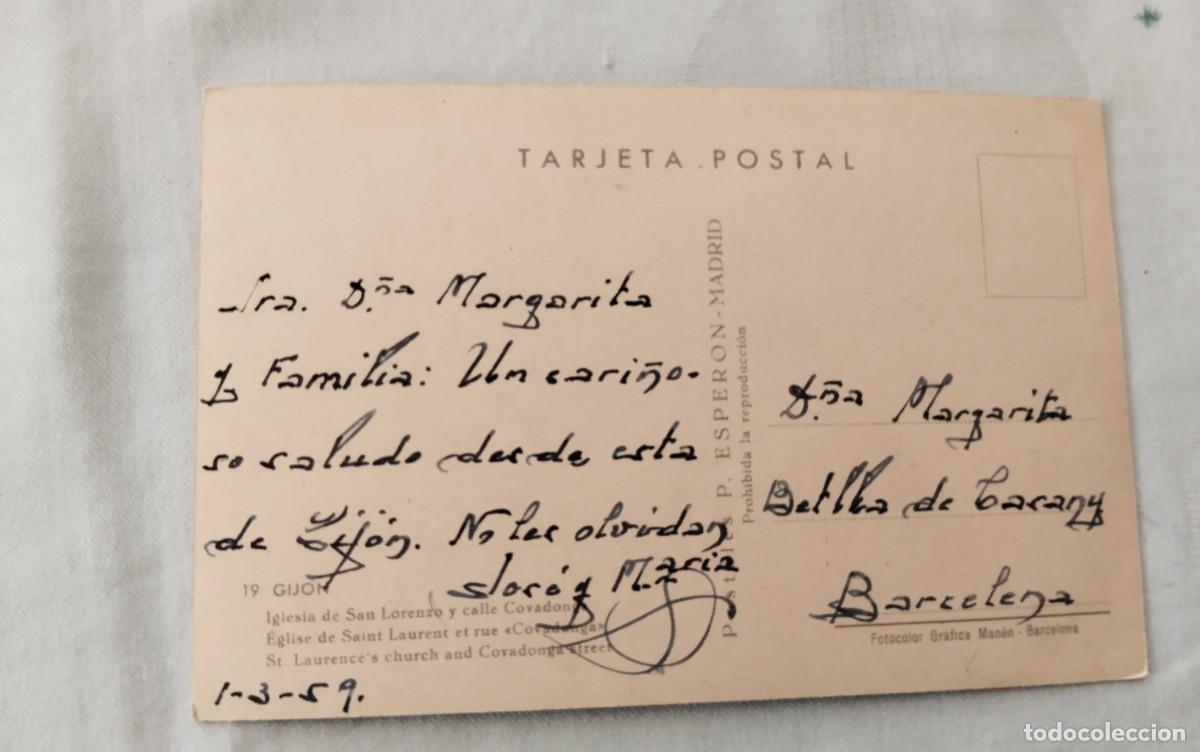 TARJETA POSTAL
Sra. Dña Margarita
y Familia: Un cariño-
so saludo desde esta
de Gijón. No les olvidan
José y Maria
19 GIJON
Iglesia de San Lorenzo y calle Covadonga
Église de Saint Laurent et rue «Covadonga»
St. Laurence's church and Covadonga street
1-3-59.
Postales P. ESPERON - MADRID
Prohibida la reproducción
Dña Margarita
de
Barcelona
Fotocolor Gráfica Manén - Barcelona
todocoleccion